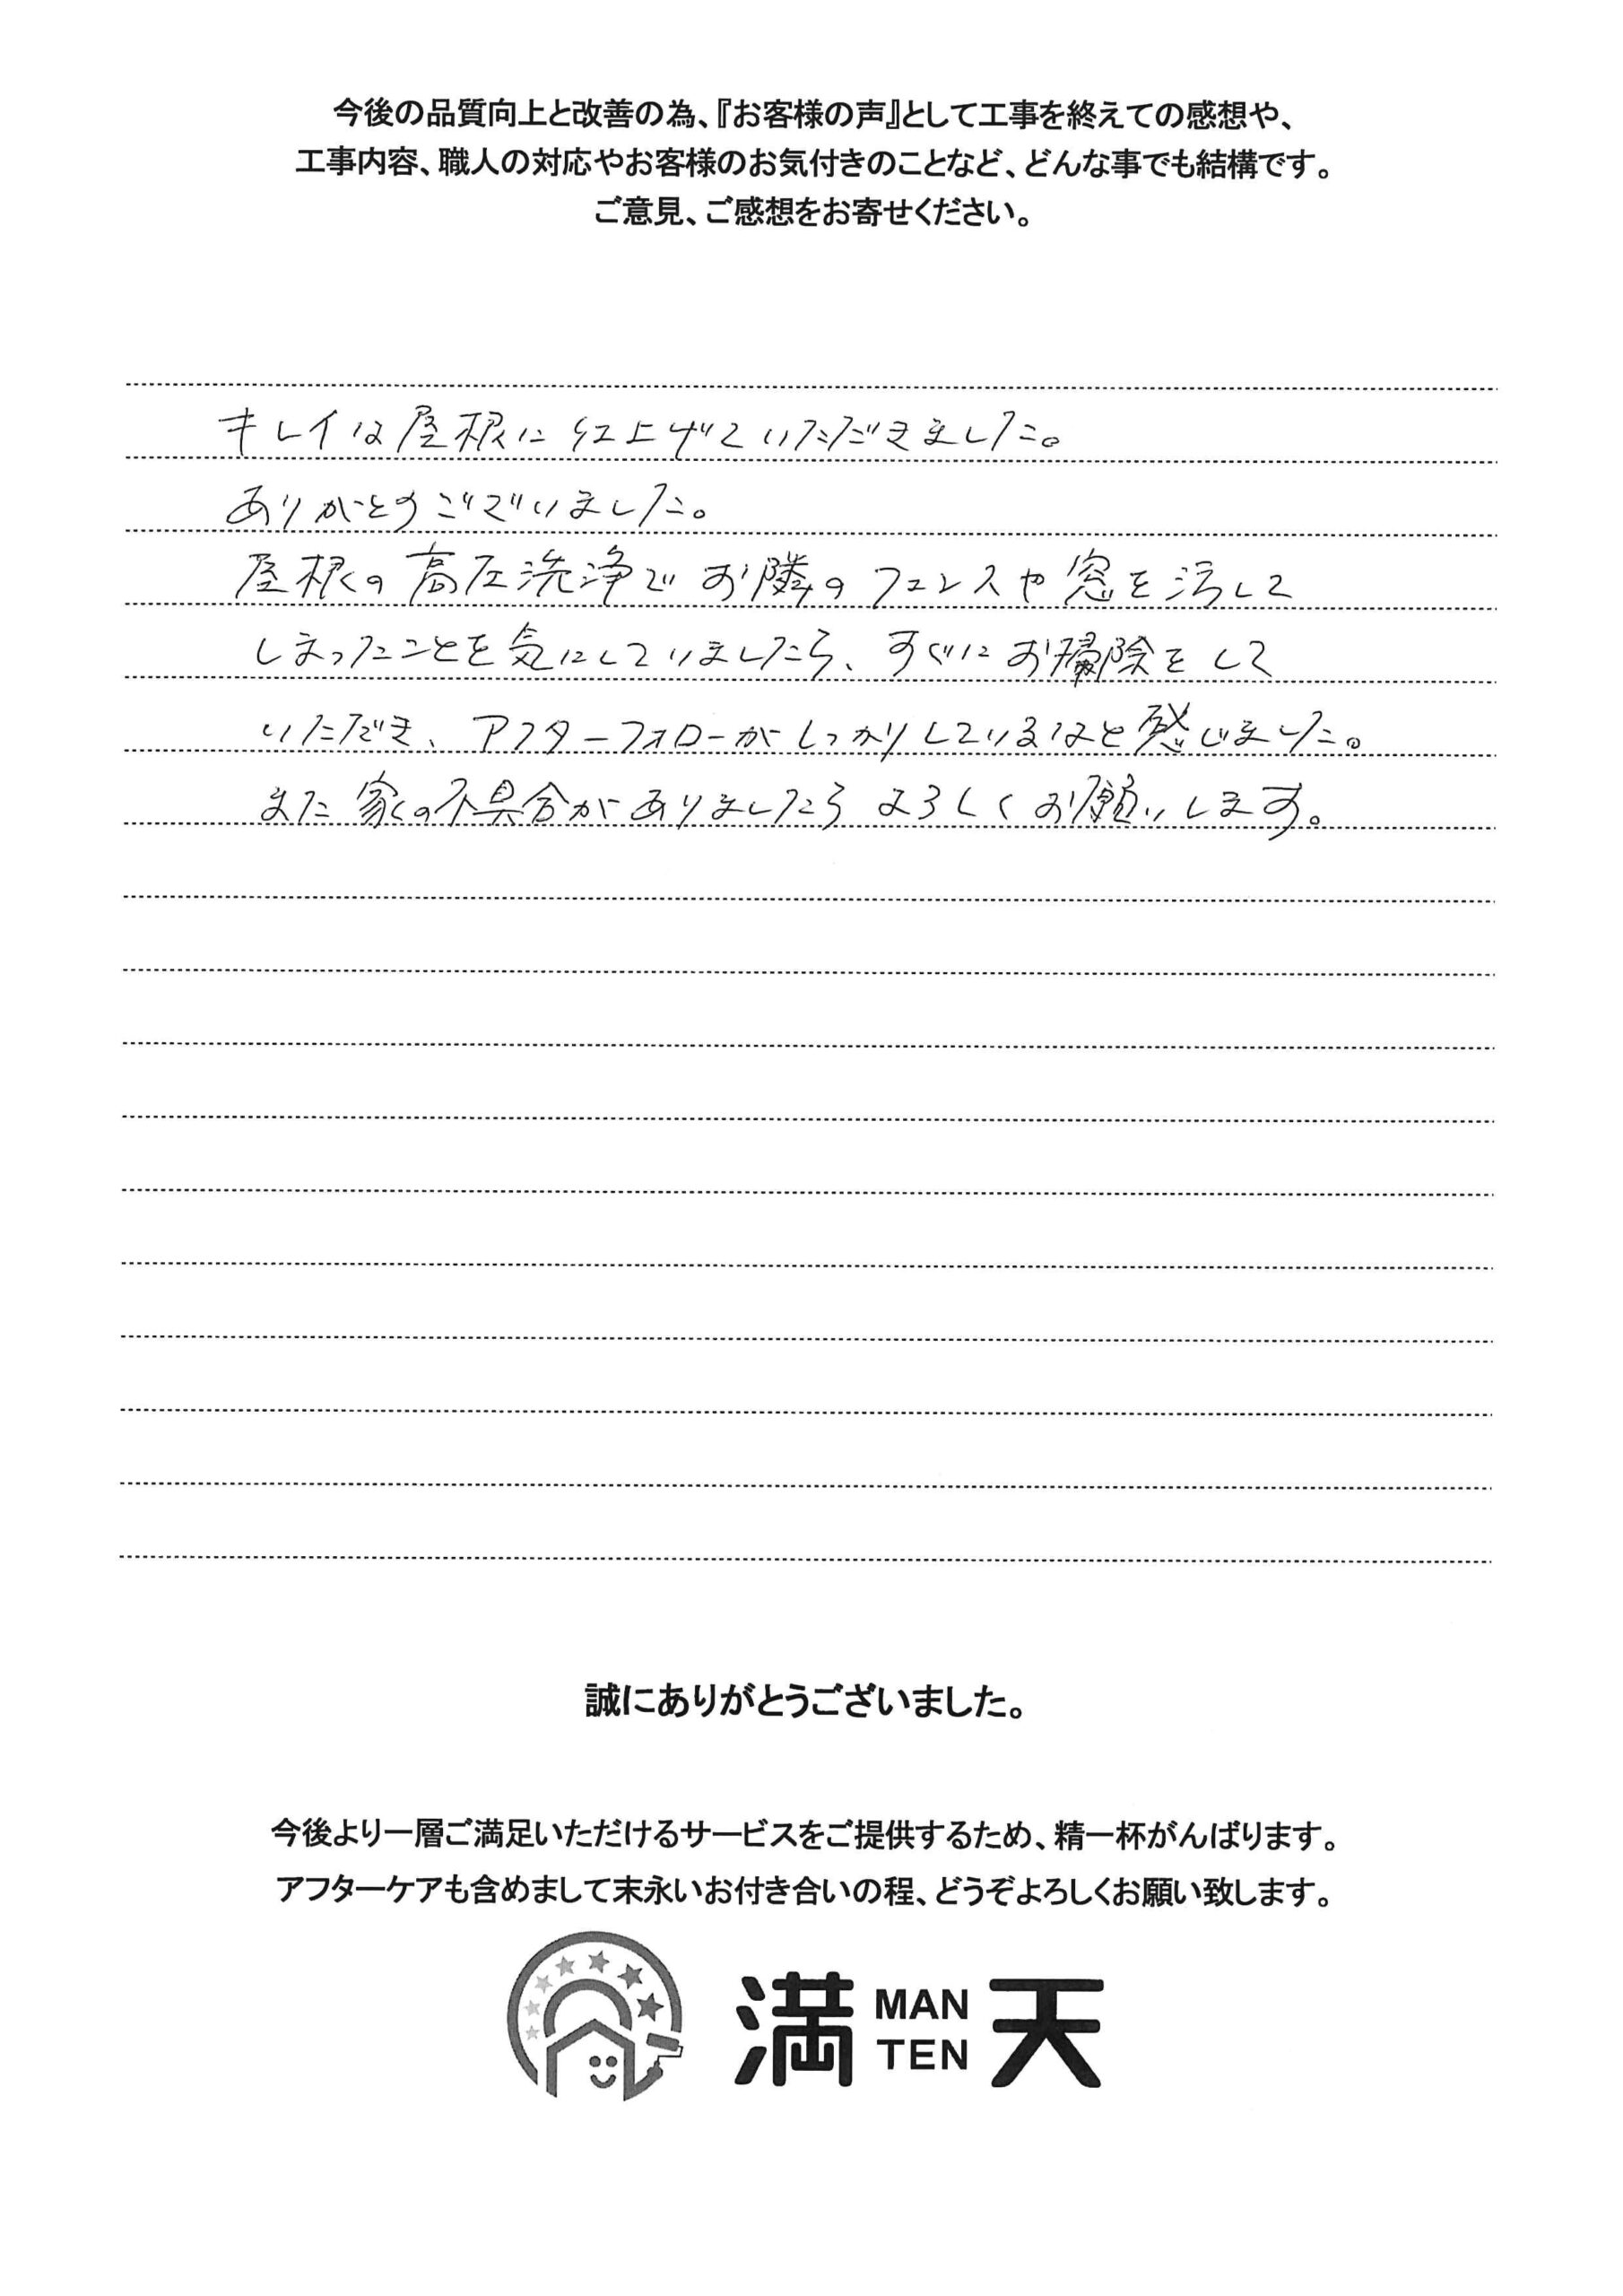 今後の品質向上と改善の為、『お客様の声』として工事を終えての感想や、
工事内容、職人の対応やお客様のお気付きのことなど、どんな事でも結構です。
ご意見、ご感想をお寄せください。
キレイな屋根に仕上げていただきました。
ありがとうございました。
屋根の高圧洗浄でお隣のフェンスや窓を汚して
しまったことを気にしていましたら、すぐにお掃除をして
いただき、アフターフォローがしっかりしているなと感じました。
また家の不具合がありましたらよろしくお願いします。
誠にありがとうございました。
今後より一層ご満足いただけるサービスをご提供するため、精一杯がんばります。
アフターケアも含めまして末永いお付き合いの程、どうぞよろしくお願い致します。
満 MAN TEN 天